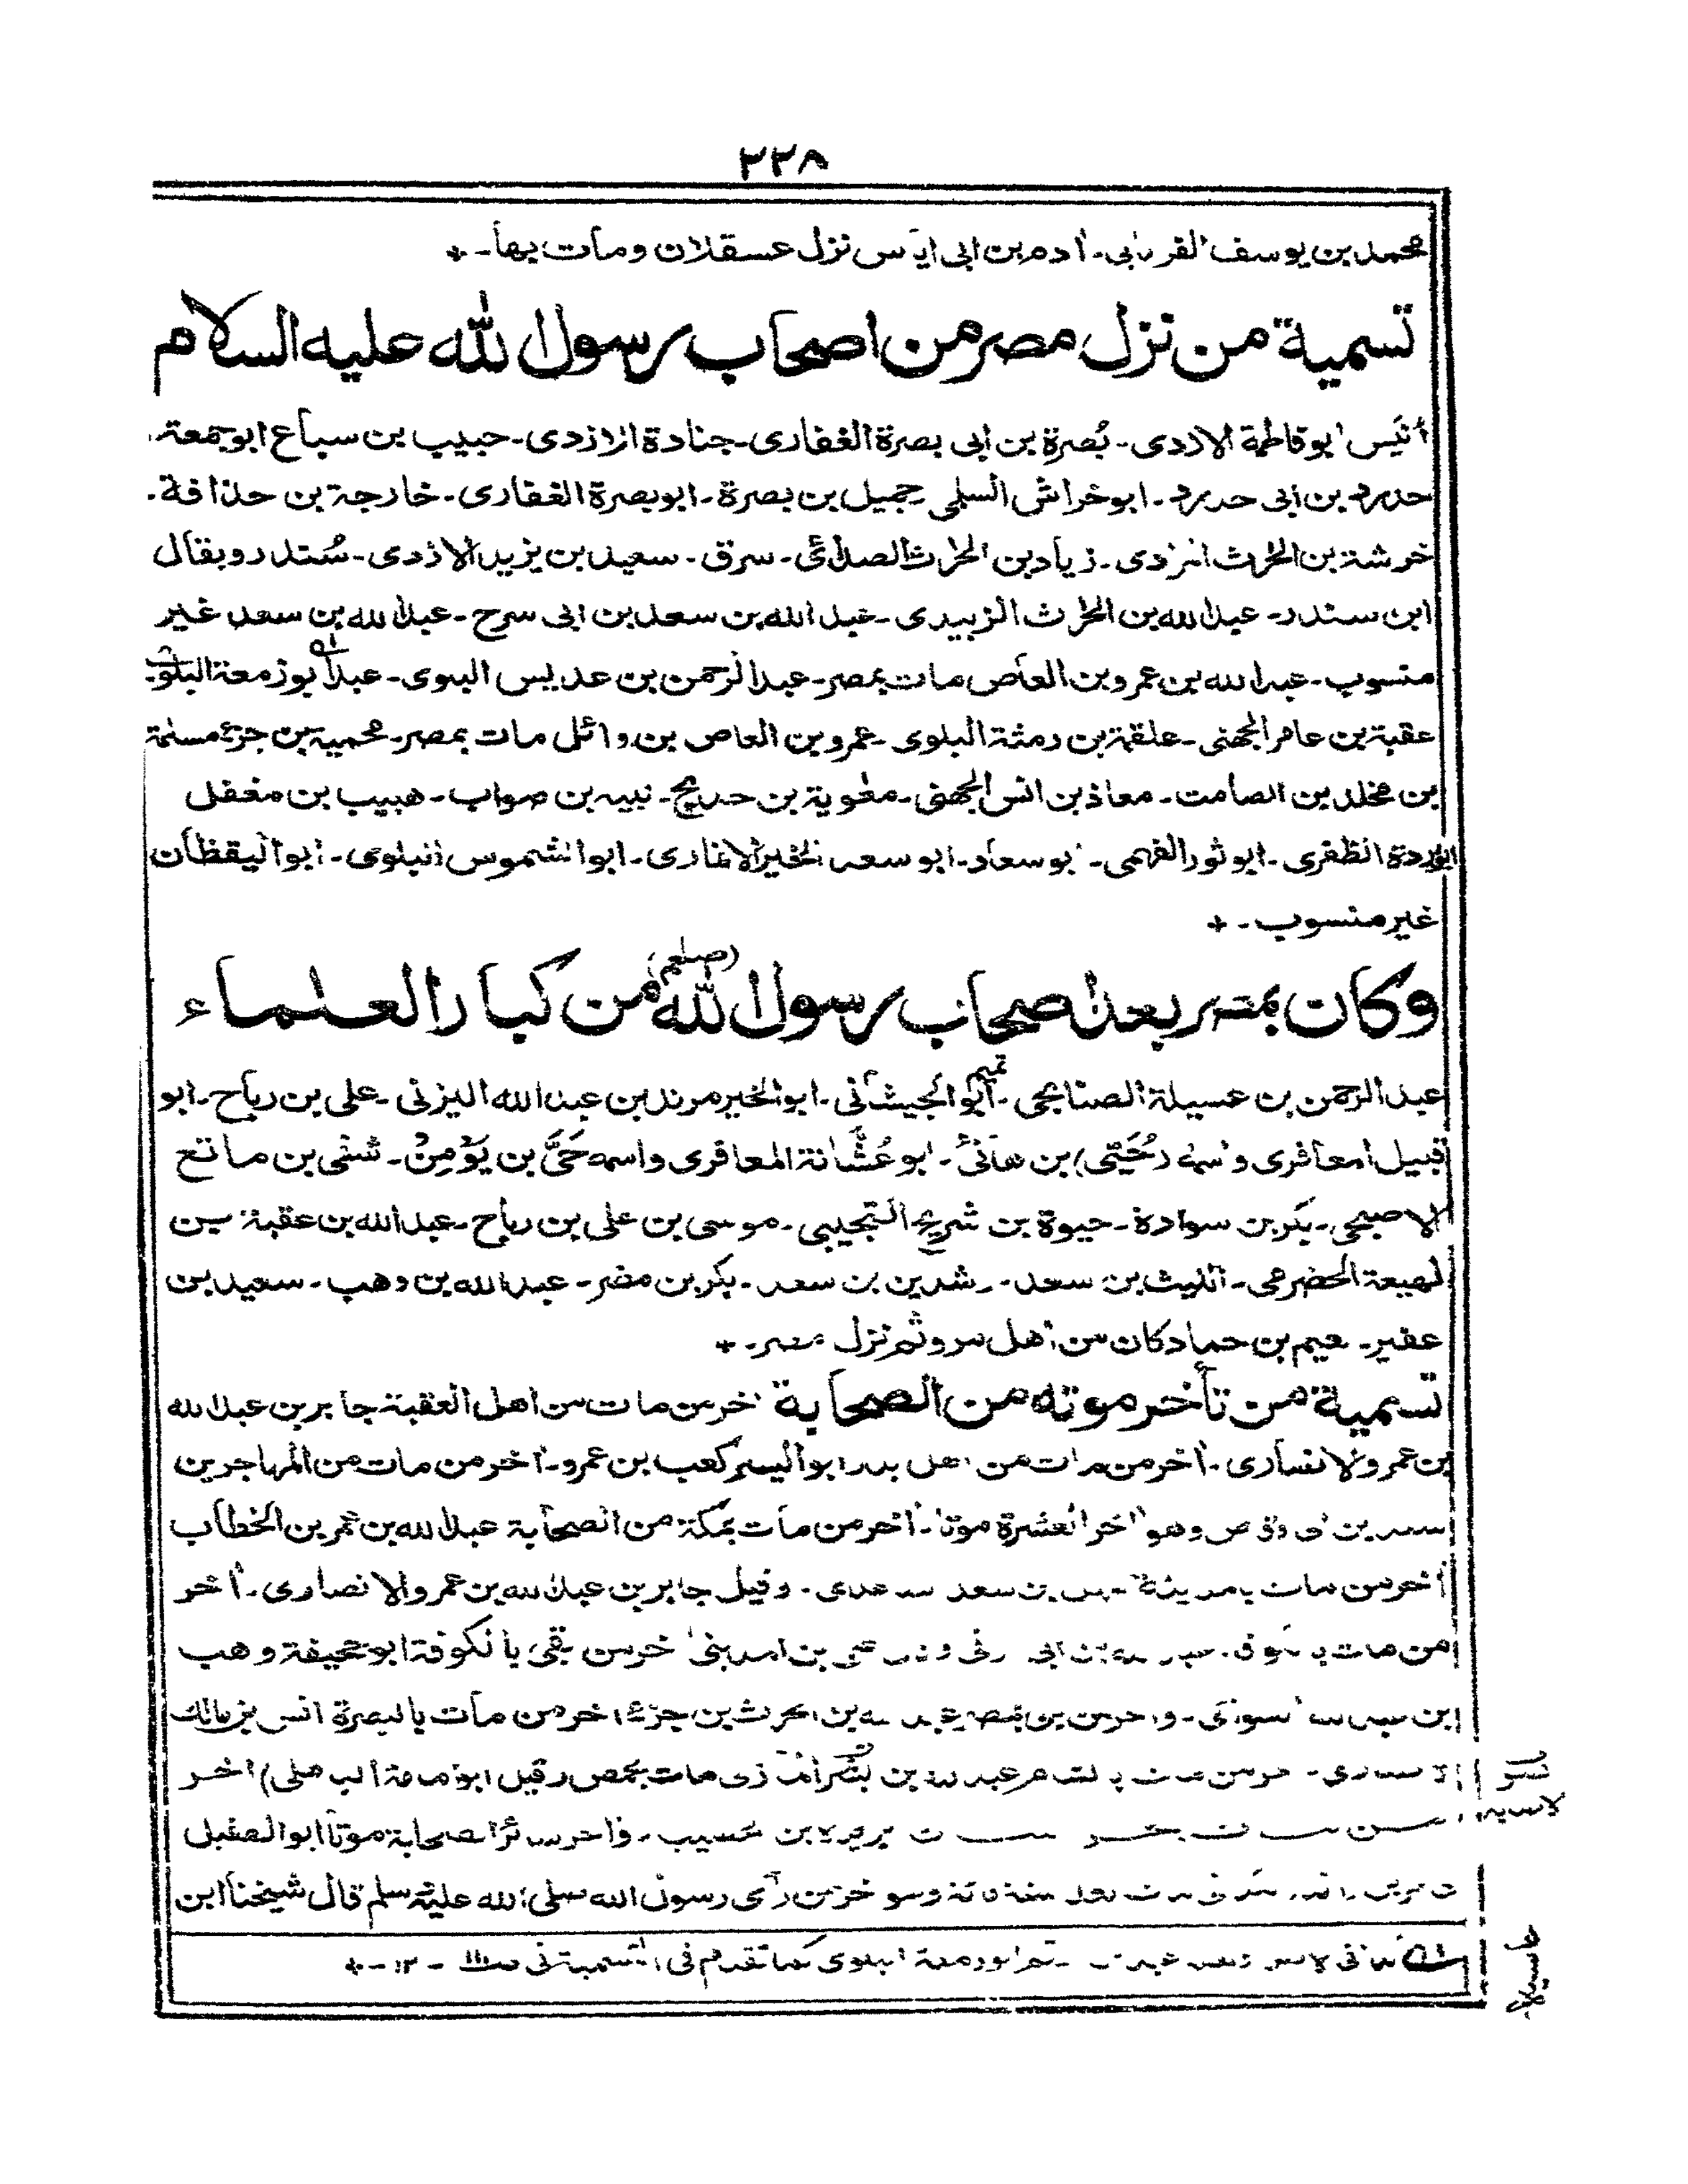 ٢٢٨
محمد بن يوسف الفريابي - آدم بن ابي اياس نزل عسقلان ومات بها -
تسمية من نزل مصر من اصحاب رسول الله عليه السلام
أنيس ابو فاطمة الازدى - بُصرة بن ابى بصرة الغفارى - جنادة الازدى - حبيب بن سباع ابو جمعة -
حدرد بن ابى حدرد - ابو خراش السلمى جميل بن بصرة - ابو بصرة الغفارى - خارجة بن حذافة -
خرشة بن الحرث الازدى - زياد بن الحرث الصدائى - سرق - سعيد بن يزيد الازدى - سُندر ويقال
ابن سندر - عبد الله بن الحرث الزبيدى - عبد الله بن سعد بن ابى سرح - عبد الله بن سعد غير
منسوب - عبد الله بن عمرو بن العاص مات بمصر - عبد الرحمن بن عديس البلوى - عبد ابو زمعة البلوى -
عقبة بن عامر الجهنى - علقمة بن رمثة البلوى - عمرو بن العاص بن وائل مات بمصر - محمية بن جزء مسلمة
بن مخلد بن الصامت - معاذ بن انس الجهنى - معوية بن حديج - نبيه بن صواب - هبيب بن مغفل
ابو بردة الظفرى - ابو ثور الفهمى - ابو سعاد - ابو سعد الخير الانمارى - ابو الشموس البلوى - ابو اليقظان
غير منسوب -
وكان بمصر بعد اصحاب رسول الله (صلعم) من كبار العلماء
عبد الرحمن بن عسيلة الصنابحى - ابو تميم الجيشانى - ابو الخير مرثد بن عبد الله اليزنى - على بن رباح - ابو
قبيل المعافرى واسمه (حُيَيّ) بن هانئ - ابو عُشّانة المعافرى واسمه حَيّ بن يَؤمِن - شفى بن ماتع
الاصبحى - بكر بن سوادة - حيوة بن شريح التجيبى - موسى بن على بن رباح - عبد الله بن عقبة بن
لهيعة الحضرمى - الليث بن سعد - رشدين بن سعد - بكر بن مضر - عبد الله بن وهب - سعيد بن
عفير - نعيم بن حماد كان من اهل مرو ثم نزل مصر -
تسمية من تأخر موته من الصحابة آخر من مات من اهل العقبة جابر بن عبد الله
بن عمرو الانصارى - آخر من مات من اهل بدر ابو اليسر كعب بن عمرو - آخر من مات من المهاجرين
سعد بن ابى وقاص وهو آخر العشرة موتا - آخر من مات بمكة من الصحابة عبد الله بن عمر بن الخطاب
آخر من مات بالمدينة سهل بن سعد الساعدى - وقيل جابر بن عبد الله بن عمرو الانصارى - آخر
من مات بالكوفة عبد الله بن ابى اوفى على بن المدينى آخر من بقى بالكوفة ابو جحيفة وهب
ابن عبد الله السوائى - وآخر من بمصر عبد الله بن الحرث بن جزء آخر من مات بالبصرة انس بن مالك
الانصارى - آخر من مات بالشام عبد الله بن بُسر المازنى مات بحمص (قيل ابو امامة الباهلى) آخر
من مات بخراسان بريدة بن حصيب - وآخر سائر الصحابة موتا ابو الطفيل
مات بعد سنة مائة وهو آخر من رأى رسول الله صلى الله عليه وسلم قال شيخنا ابن
كذا فى الاصل ابو زمعة البلوى كما تقدم فى التسمية فى